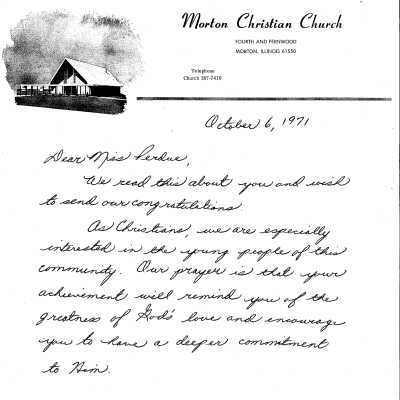 Morton Christian Church
FOURTH AND FERNWOOD
MORTON, ILLINOIS 61550
Telephone
Church 267-7410
October 6, 1971
Dear Miss Perdue,
We read this about you and wish
to send our congratulations
As Christians, we are especially
interested in the young people of this
community. Our prayer is that your
achievement will remind you of the
greatness of God's love and encourage
you to have a deeper commitment
to Him.